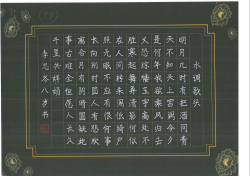 水调歌头
明月几时有把酒问青
天不知天上宫阙今夕
是何年我欲乘风归去
又恐琼楼玉宇高处不
胜寒起舞弄清影何似
在人间转朱阁低绮户
照无眠不应有恨何事
长向别时圆人有悲欢
离合月有阴晴圆缺此
事古难全但愿人长久
千里共婵娟
李 八岁书